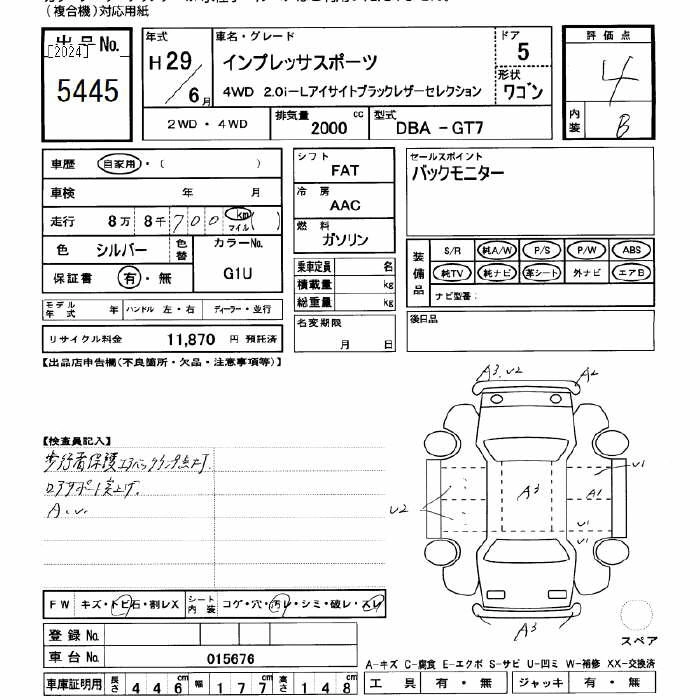 (複合機)対応用紙
出品No.
[2024]
5445
年式
H29/6月
車名・グレード
インプレッサスポーツ
4WD 2.0i-Lアイサイトブラックレザーセレクション
ドア
5
形状
ワゴン
評価点
4
内装
B
2WD・4WD
排気量
2000cc
型式
DBA-GT7
車歴 自家用・( )
車検 年 月
走行 8万8千700 km マイル ( )
色 シルバー
色替
カラーNo.
G1U
保証書 有・無
シフト
FAT
冷房
AAC
燃料
ガソリン
乗車定員 名
積載量 kg
総重量 kg
セールスポイント
バックモニター
装備品
S/R 純A/W P/S P/W ABS
純TV 純ナビ 革シート 外ナビ エアB
ナビ型番:
モデル年式 年 ハンドル 左・右 ディーラー・並行
リサイクル料金 11,870 円 預託済
名変期限
月 日
後日品
【出品店申告欄(不良箇所・欠品・注意事項等)】
A3.U2 A2
【検査員記入】
歩行者保護エアバッグランプ点灯.
ロアサポート突上げ.
A.U.
U1
A1
A3
U2
U1
U1
A3
FW キズ・トビ石・割レX シート内装 コゲ・穴・汚レ・シミ・破レ・スレ
登録No.
車台No. 015676
車庫証明用 長さ 446cm 幅 177cm 高さ 148cm
スペア
A-キズ C-腐食 E-エクボ S-サビ U-凹ミ W-補修 XX-交換済
工具 有・無 ジャッキ 有・無